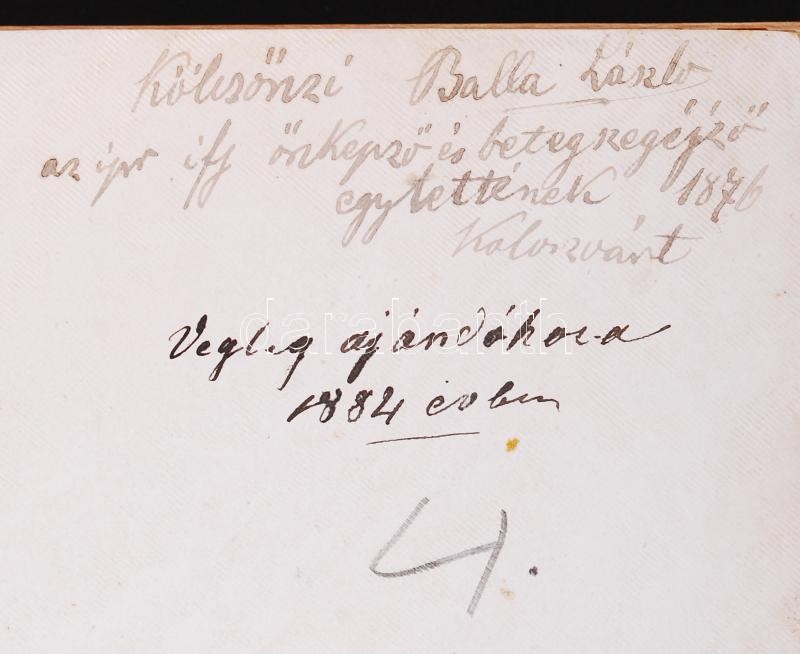 Kölcsönzi Balla László
az ipr ifj önképző és betegsegéjző
egytettének 1876
Kolozsvárt
Vegleg ajándókoza
1884 évben
darabanth
4.